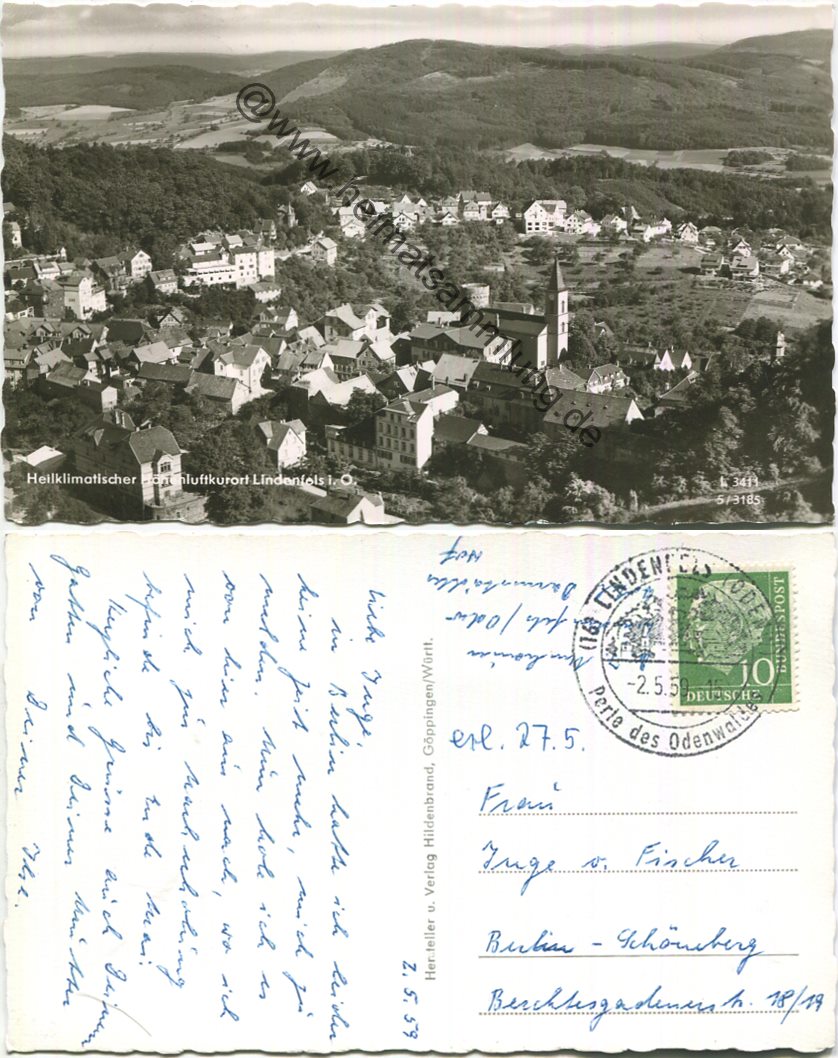 © www.heimatsammlung.de
Heilklimatischer Höhenluftkurort Lindenfels i. O.
L 3411
5/3185
2. 5. 59
Liebe Inge,
in Berlin hatte ich leider
keine Zeit mehr, mich zu
melden. Nun hole ich es
von hier aus nach, wo ich
mich zur Nachschulung
befinde bis Ende Mai.
Herzliche Grüsse auch Deinem
Gatten und Deiner Mutter
von Deiner Ilse.
Hersteller u. Verlag Hildenbrand, Göppingen/Württ.
fels/Odw
Darmstädter
Hof
(16) LINDENFELS (ODENW)
-2.5.59
Perle des Odenwaldes
10
DEUTSCHE
BUNDESPOST
erl. 27.5.
Frau
Inge v. Fischer
Berlin - Schöneberg
Berchtesgadenerstr. 18/19